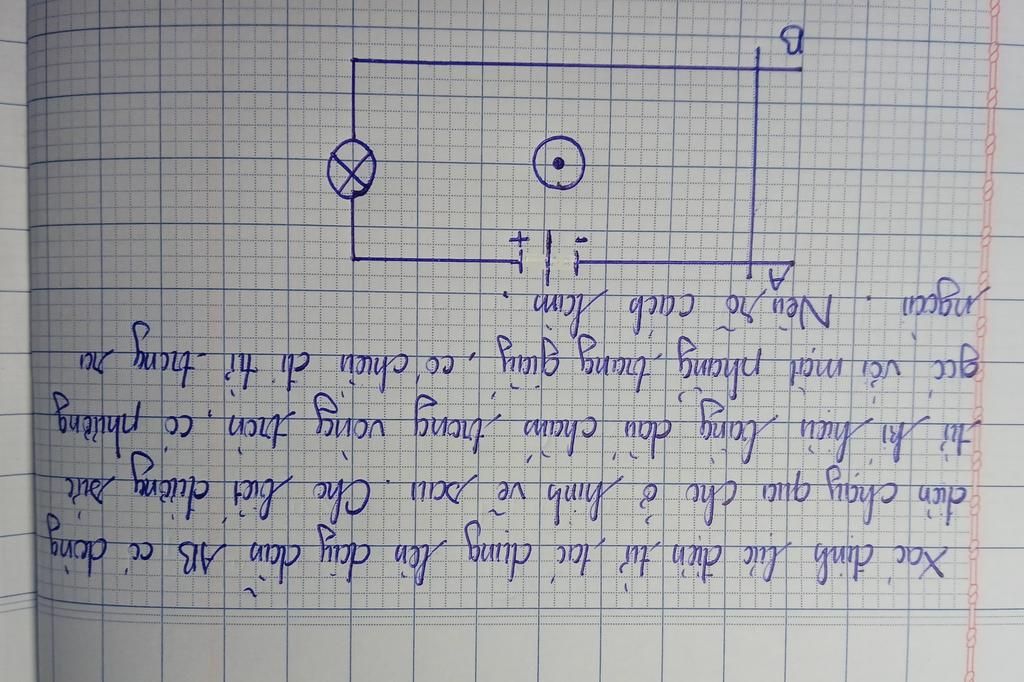 Xác định lực điện từ tác dụng lên dây dẫn AB có dòng
điện chạy qua cho ở hình vẽ sau. Cho biết đường sức
từ kí hiệu bằng dấu chấm trong vòng tròn, có phương
góc với mặt phẳng trang giấy, có chiều đi từ trong ra
ngoài. Nêu rõ cách làm.
A
- +
B